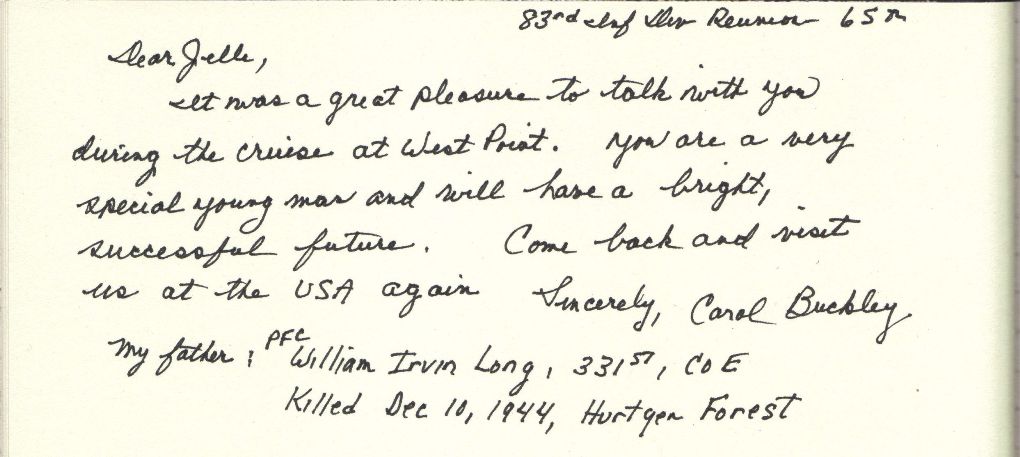 83rd Inf Div Reunion 65th
Dear Jelle,
It was a great pleasure to talk with you
during the cruise at West Point. You are a very
special young man and will have a bright,
successful future. Come back and visit
us at the USA again Sincerely, Carol Buckley
My father: PFC William Irvin Long, 331ST, Co E
Killed Dec 10, 1944, Hurtgen Forest